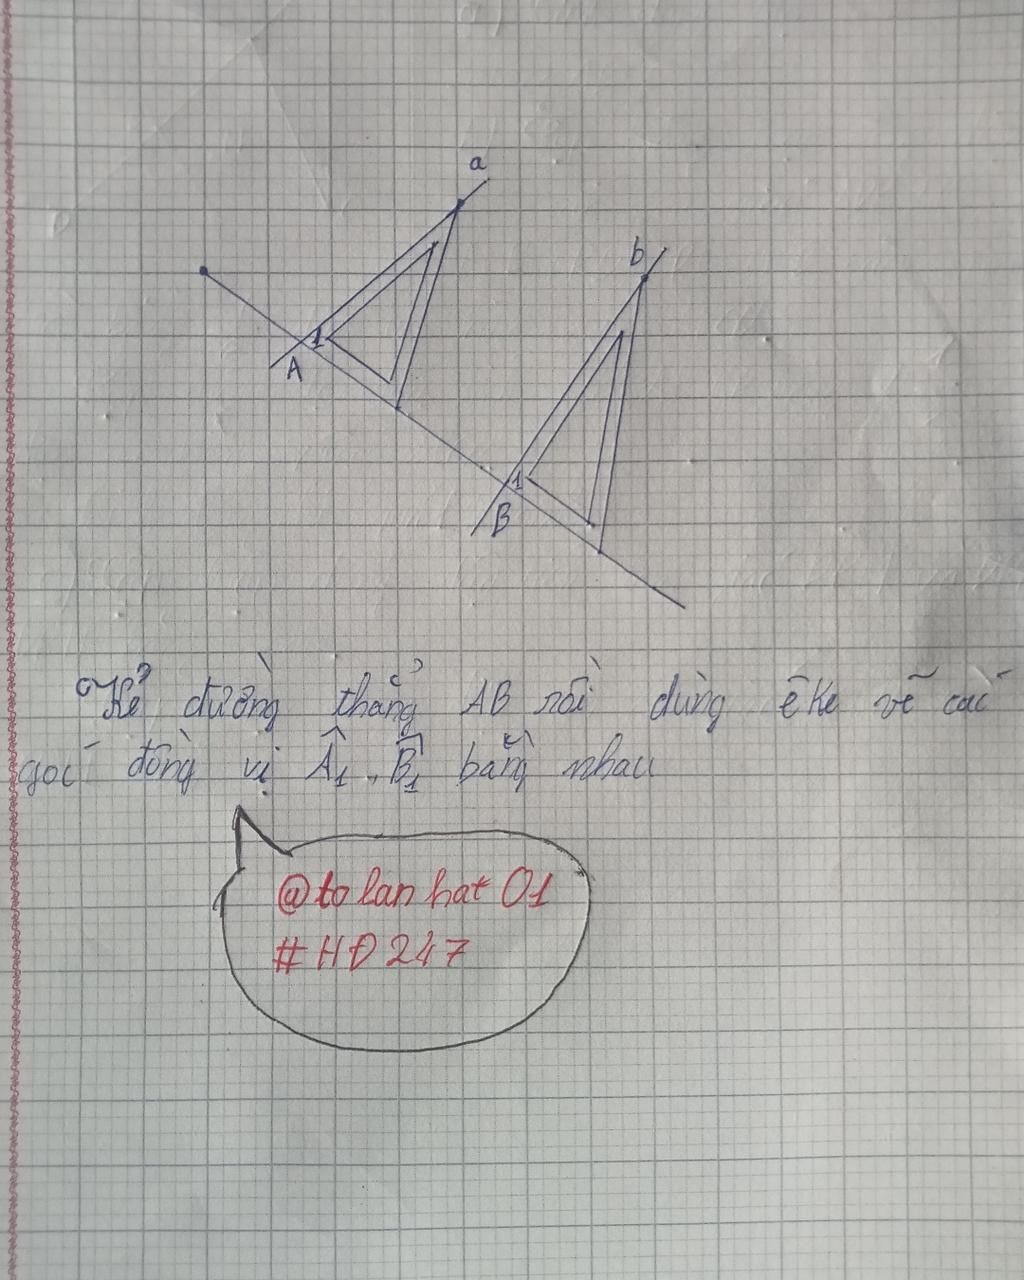 a
b
1
A
1
B
Kẻ đường thẳng AB rồi dùng êke vẽ các
góc đồng vị Â1, B̂1 bằng nhau
@to lan hat 01
#HĐ247